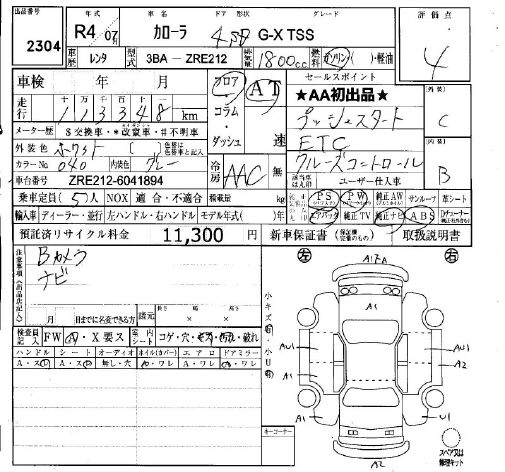 出品番号 年式 車名 ドア 形状 グレード 評価点
2304 R4 07月 カローラ 4 SD G-X TSS 4
車歴 レンタ 型式 3BA － ZRE212 排気量 1800cc 燃料 ガソリン・軽油
車検 年 月 フロア AT セールスポイント 外装
走行 113348 km コラム ★AA初出品★ C
メーター歴 $交換車・*改竄車・#不明車 ダッシュ 速 プッシュスタート
外装色 ホワイト ETC 内装
カラーNo 040 内装色 グレー 冷房 AAC 無 クルーズコントロール B
車台番号 ZRE212-6041894 ユーザー仕入車
乗車定員 (5)人 NOX 適合・不適合 積載量 kg PS PW 純正AW サンルーフ 革シート
輸入車 ディーラー・並行 左ハンドル・右ハンドル モデル年式( )年 エアバック 純正TV 純正ナビ ABS
預託済リサイクル料金 11,300 円 新車保証書 取扱説明書
Bカメラ
ナビ
左 右
A1 A
A1
AU1 AU1
A1 A2
A1 U1
A2
月 日までに名変できる方 諸元 長さ 幅 高さ
検査員記入 FW A・X 要ス 室内シート コゲ・穴・キズ・汚れ・破れ
ハンドル シート オーディオ ホイル(カバー) エアロ ドアミラー
A・ス A・ス 無し・穴 A・ワレ A・ワレ A・ワレ
キーコーナー
スペア又は修理キット